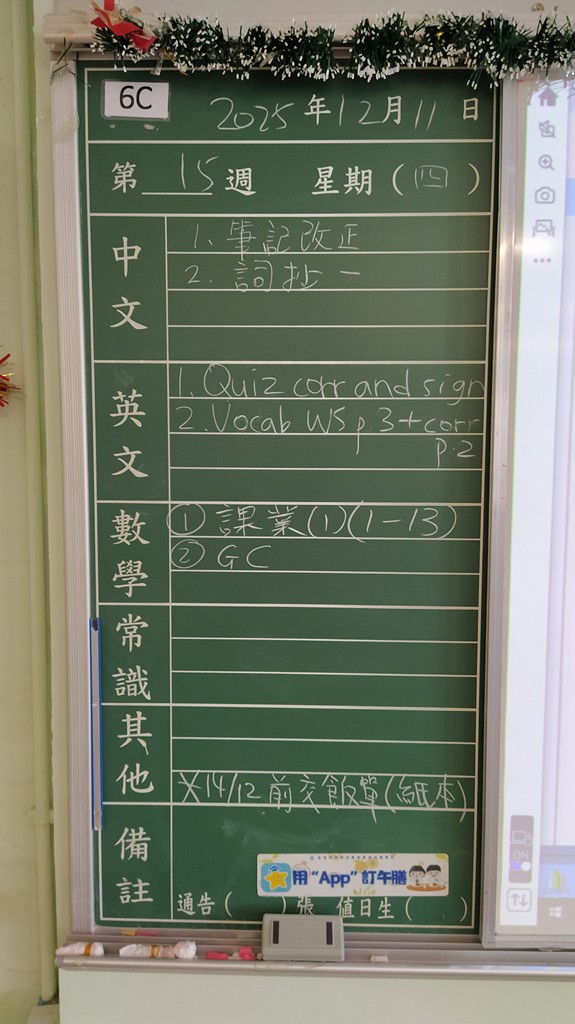 6C
2025年12月11日
第 15 週 星期(四)
中文
1. 筆記改正
2. 詞抄一
英文
1. Quiz corr and sign
2. Vocab WS p.3 + corr
p.2
數學
① 課業(1)(1-13)
② GC
常識
其他
※14/12前交飯單(紙本)
備註
用"App"訂午膳
通告( )張 值日生( )
ON